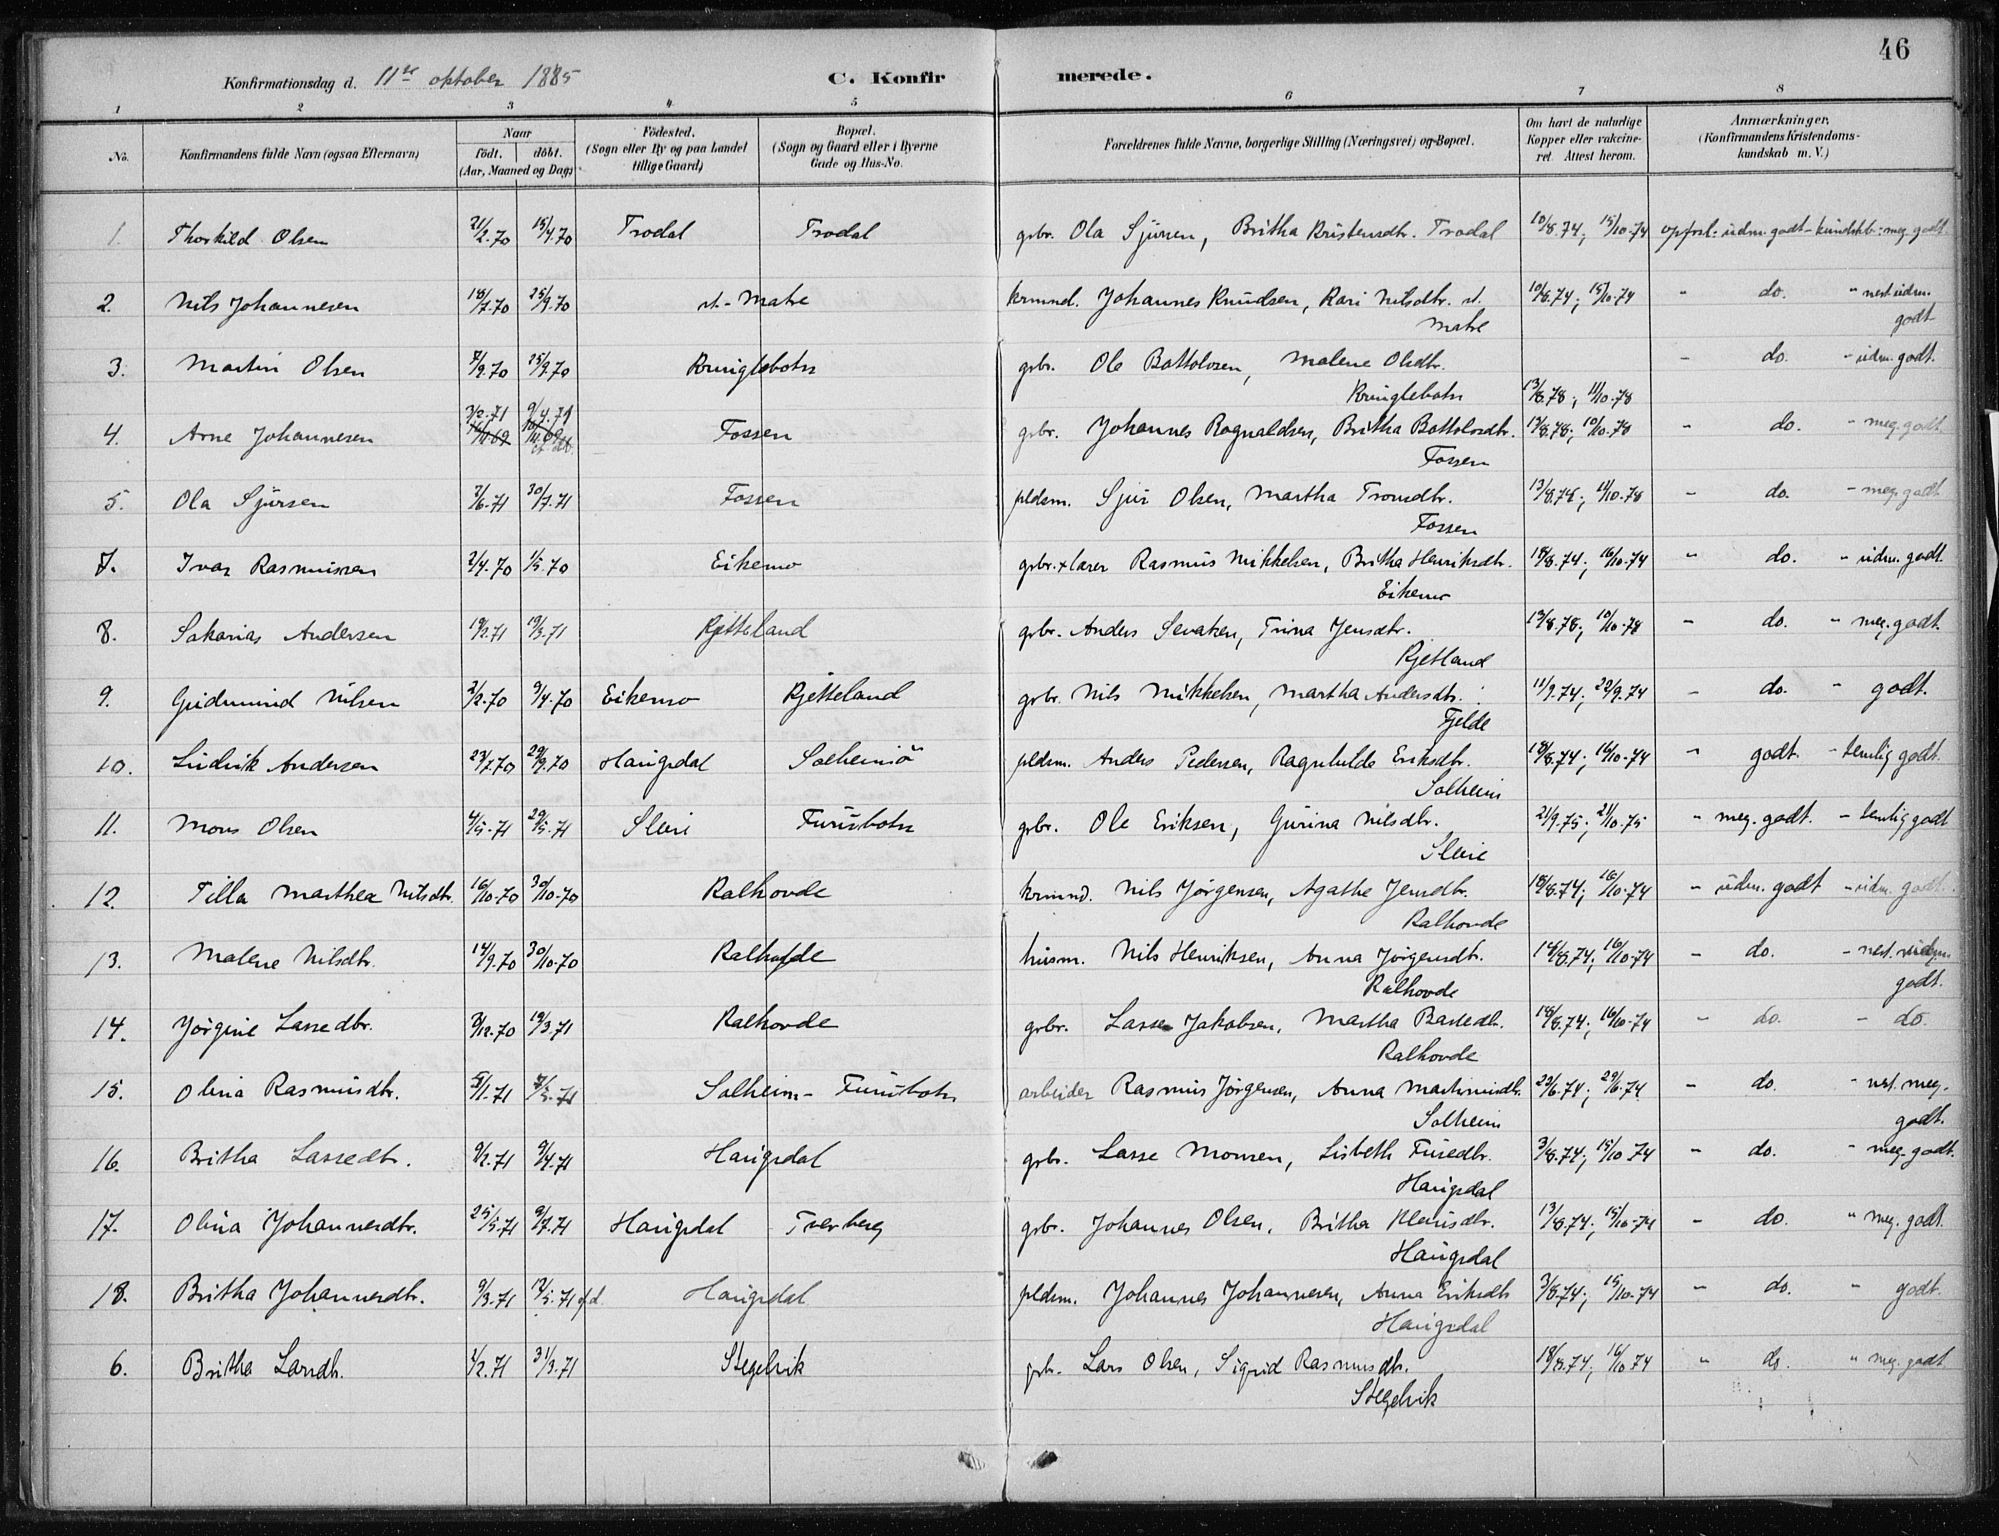 46
Konfirmationsdag d. 11te oktober 1885 C. Konfirmerede.
1 2 3 4 5 6 7 8
No. Konfirmandens fulde Navn (ogsaa Efternavn) Naar födt. döbt. (Aar, Maaned og Dag) Födested. (Sogn eller By og paa Landet tillige Gaard) Bopæl. (Sogn og Gaard eller i Byerne Gade og Hus-No. Forældrenes fulde Navne, borgerlige Stilling (Næringsvei) og Bopæl. Om havt de naturlige Kopper eller vakcineret. Attest herom. Anmærkninger. (Konfirmandens Kristendomskundskab m. V.)
1. Thorkild Olsen 21/2.70 15/4.70 Trodal Trodal grbr. Ola Sjursen, Britha Kristensdtr. Trodal 10/8.74; 15/10-74 opførs: udm. godt - kundskb: meg. godt.
2. Nils Johannesen 18/7.70 25/9.70 st. Matre krmnd. Johannes Knudsen, Kari Nilsdtr. st. 10/8.74; 15/10-74 " do. " nest udm.
Matre godt
3. Martin Olsen 7/9.70 25/9.70 Kringlebotn grbr. Ole Battolvsen, Malene Olsdtr. - do. - udm. godt.
Kringlebotn 13/8.78; 11/10-78
3/2.71 9/4.71
4. Arne Johannesen Fossen grbr. Johannes Ragnaldsen, Britha Battolvsdtr. 13/8.78; 10/10-78 - do. - meg. godt.
Fossen
5. Ola Sjursen 7/6.71 30/7.71 Fossen pldsm. Sjur Olsen, Martha Tromsdtr. 13/8.78; 11/10-78 - do. - meg. godt
Fossen
7. Ivar Rasmussen 2/4.70 1/5.70 Eikemo grbr. + lærer Rasmus Mikkelsen, Britha Henriksdtr. 18/8.74; 16/10-74 " do. - udm. godt.
Eikemo
8. Sakarias Andersen 19/2.71 19/3.71 Kjetteland grbr. Anders Sevatsen, Trina Jensdtr. 13/8.78; 10/10-78 - do. " meg. godt.
Kjetland
9. Gudmund Nilsen 2/2.70 9/4.70 Eikemo Kjetteland grbr. Nils Mikkelsen, Martha Andersdtr. 11/9.74; 22/9.74 - do. - godt.
Fjelde
10. Ludvik Andersen 23/7.70 29/9.70 Haugsdal Solheimsö pldsm. Anders Pedersen, Ragnhilds Eriksdtr. 18/8.74; 16/10-74 " godt. - temlig godt.
Solheim
11. Mons Olsen 4/5.71 29/5.71 Sleire Furubotn grbr. Ole Eriksen, Gurina Nilsdtr. 21/9.75; 21/10.75 " meg. godt. - temlig godt
Sleire
12. Tilla Marthea Nilsdtr. 16/10-70 30/10-70 Kalhovde krmnd. Nils Jørgensen, Agathe Jensdtr. 18/8.74; 16/10-74 - udm. godt - udm. godt.
Kalhovde
13. Malene Nilsdtr. 14/9.70 30/10-70 Kalhovde husm. Nils Henriksen, Anna Jørgensdtr. 18/8.74; 16/10-74 - do. - nest. udm.
Kalhovde godt.
14. Jørgine Lassedtr. 3/12.70 19/3.71 Kalhovde grbr. Lasse Jakobsen, Martha Barsedtr. 18/8.74; 16/10-74 - do. - do.
Kalhovde
15. Olina Rasmusdtr. 5/1.71 Solheim - Furubotn arbeider Rasmus Jörgensen, Anna Martinusdtr. 23/6.74; 29/6.74 - do. - nest. meg.
Solheim godt.
16. Britha Lassedtr. 9/2.71 9/4.71 Haugsdal grbr. Lasse Monsen, Lisbeth Fusedtr. 3/8.74; 15/10 74 - do. " meg. godt.
Haugsdal
17. Olina Johannesdtr. 25/5.71 9/7.71 Haugsdal Tverberg grbr. Johannes Olsen, Britha Klausdtr. 13/8.74; 15/10-74 - do. " meg. godt.
Haugsdal
18. Britha Johannesdtr. 9/3.71 Haugsdal pldsm. Johannes Johannesen, Anna Eriksdtr 3/8.74; 15/10-74 - do. " godt.
Haugsdal
6. Britha Larsdtr. 1/2.71 31/3.71 Stegelvik grbr. Lars Olsen, Sigrid Rasmusdtr. 18/8.74; 16/10 74 " do. " meg. godt
Stegelvik